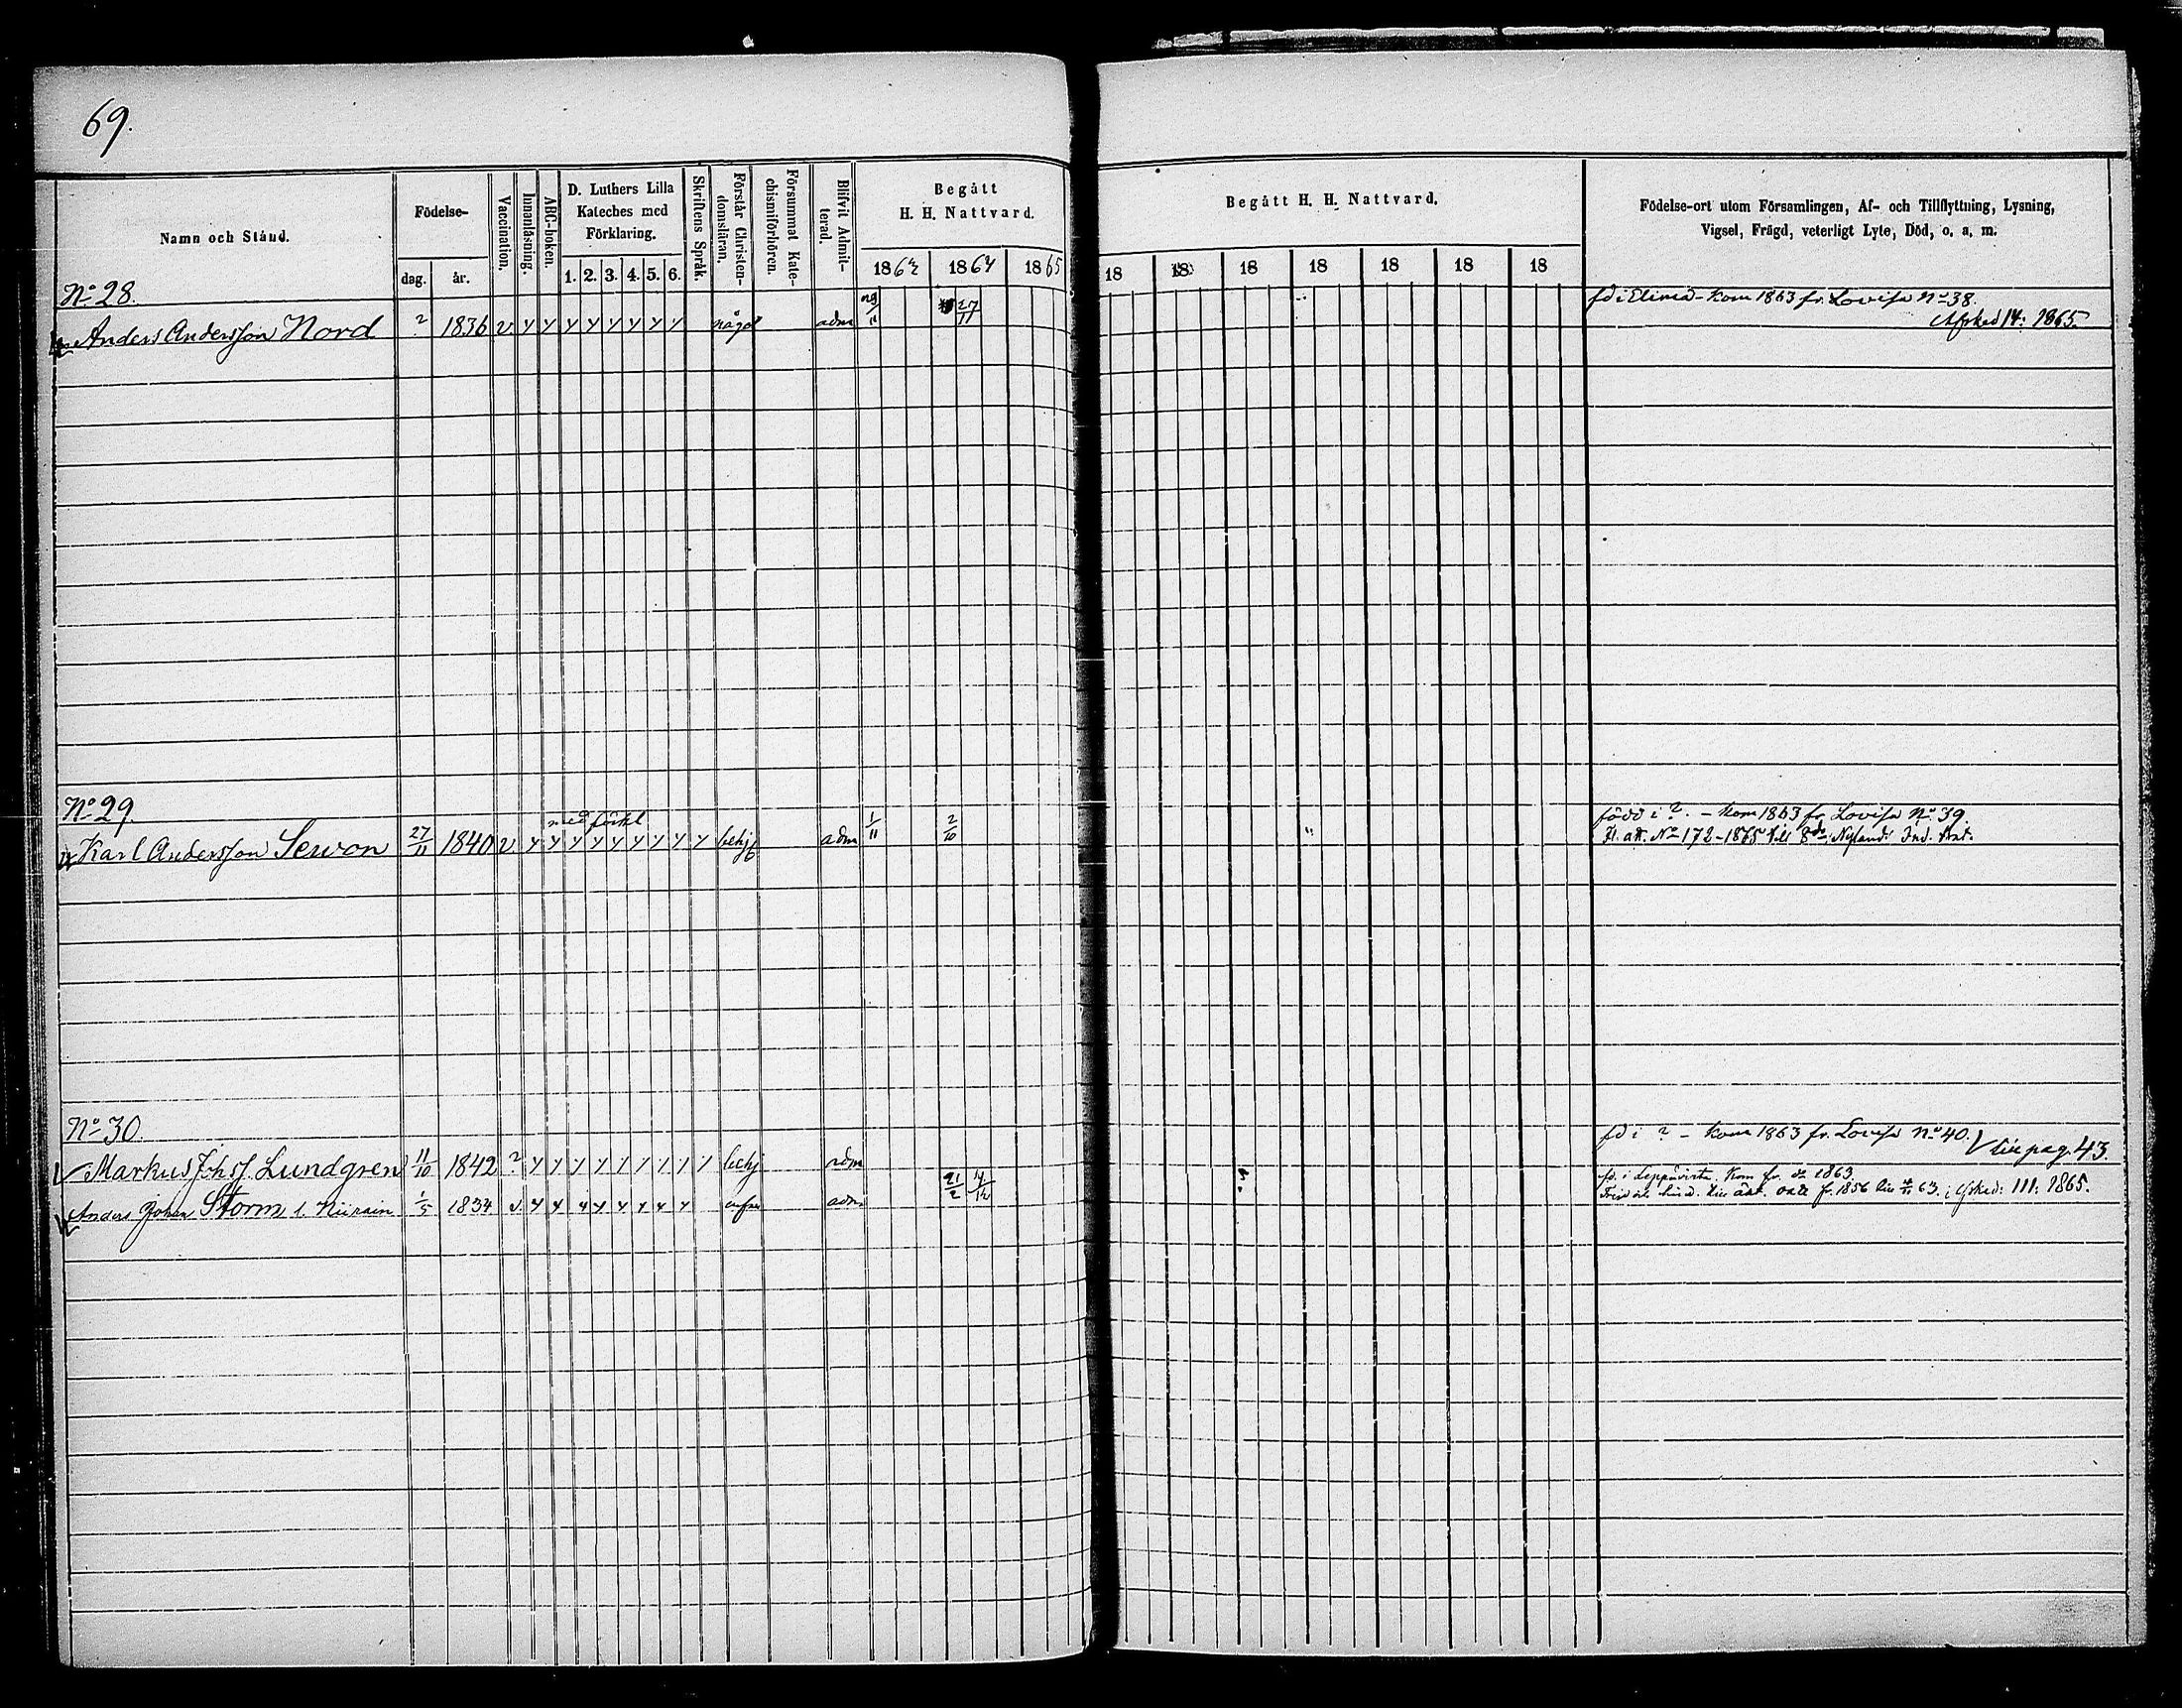 69.
Namn och Stånd.
Födelse-
dag.
år.
Vaccination.
Innanläsning.
ABC-boken.
D. Luthers Lilla
Kateches med
Förklaring.
1. 2. 3. 4. 5. 6.
Skriftens Språk.
Förstår Christen-
domsläran.
Försummat Kate-
chismiförhören.
Blifvit Admit-
terad.
Begått
H. H. Nattvard.
1863 1864 1865
Begått H. H. Nattvard.
18 18 18 18 18 18 18
Födelse-ort utom Församlingen, Af- och Tillflyttning, Lysning,
Vigsel, Frägd, veterligt Lyte, Död, o. a. m.
No 28.
Anders Andersson Nord ? 1836 v. något adm 29/11 27/11
fd i Elimä - kom 1863 fr. Lovisa No 38.
Afsked 14: 1865.
No 29.
med förkl
Karl Andersson Sewon 27/11 1840 v. behj adm 1/11 2/10
född i ? - kom 1863 fr. Lovisa No 39.
Fl. att. No 172-1865 till Nyland
No 30.
Markus Johss. Lundgren 11/10 1842 ? behj adm
fd i ? - kom 1863 fr. Lovisa No 40.
pag. 43.
Anders Johan Storm 1/5 1834 v. adm 21/2 4/12
fd. i Leppävirta. kom fr. 1863.
fr. 1856 63. Afsked: 111: 1865.